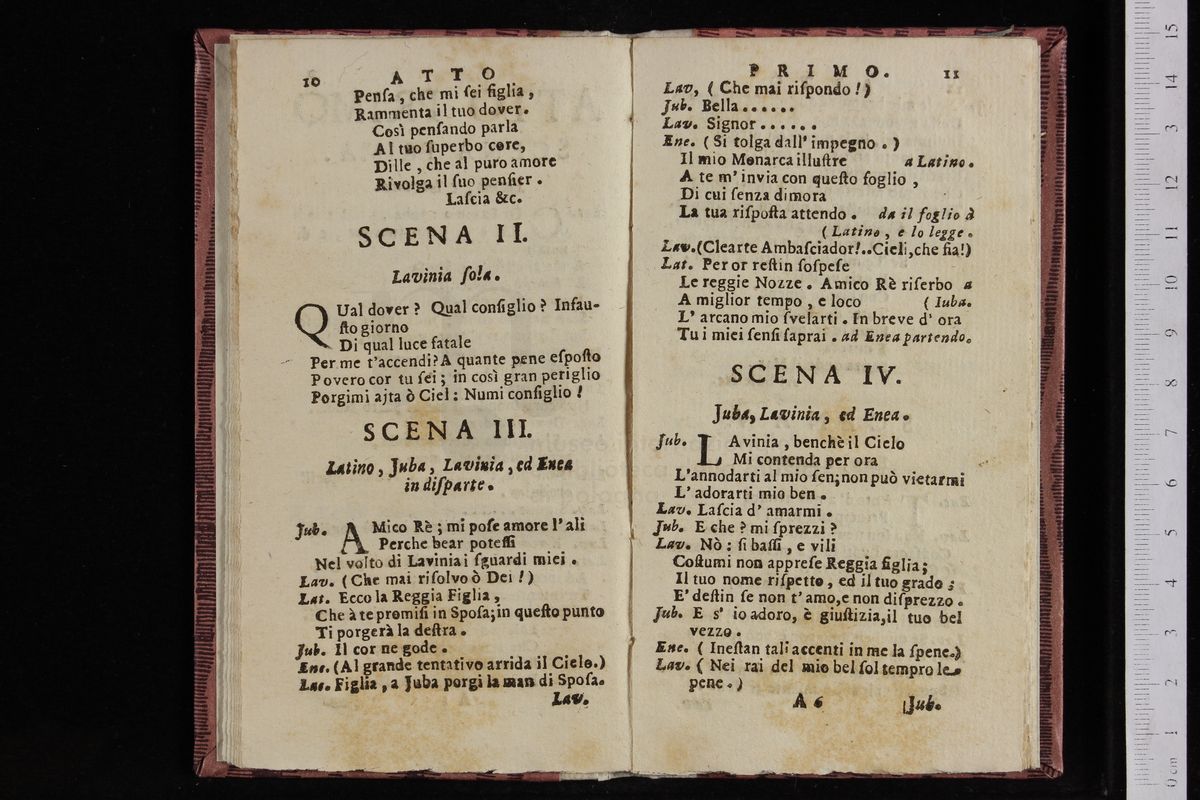 10 ATTO
Penſa, che mi ſei figlia,
Rammenta il tuo dover.
Così penſando parla
Al tuo ſuperbo core,
Dille, che al puro amore
Rivolga il ſuo penſier.
Laſcia &c.
SCENA II.
Lavinia ſola.
QUal dover? Qual conſiglio? Infau-
ſto giorno
Di qual luce fatale
Per me t'accendi? A quante pene eſpoſto
Povero cor tu ſei; in così gran periglio
Porgimi ajta ò Ciel: Numi conſiglio!
SCENA III.
Latino, Juba, Lavinia, ed Enea
in diſparte.
Jub. AMico Rè; mi poſe amore l'ali
Perche bear poteſſi
Nel volto di Lavinia i ſguardi miei.
Lav. (Che mai riſolvo ò Dei!)
Lat. Ecco la Reggia Figlia,
Che à te promiſi in Spoſa; in queſto punto
Ti porgerà la deſtra.
Jub. Il cor ne gode.
Ene. (Al grande tentativo arrida il Cielo.)
Lat. Figlia, a Juba porgi la man di Spoſa.
Lav.
PRIMO. 11
Lav, (Che mai riſpondo!)
Jub. Bella......
Lav. Signor......
Ene. (Si tolga dall'impegno.)
Il mio Monarca illuſtre a Latino.
A te m'invia con queſto foglio,
Di cui ſenza dimora
La tua riſpoſta attendo. da il foglio à
(Latino, e lo legge.
Lav. (Clearte Ambaſciador!..Cieli, che fia!)
Lat. Per or reſtin ſoſpeſe
Le reggie Nozze. Amico Rè riſerbo a
A miglior tempo, e loco (Iuba.
L'arcano mio ſvelarti. In breve d'ora
Tu i miei ſenſi ſaprai. ad Enea partendo.
SCENA IV.
Juba, Lavinia, ed Enea.
Jub. LAvinia, benchè il Cielo
Mi contenda per ora
L'annodarti al mio ſen; non può vietarmi
L'adorarti mio ben.
Lav. Laſcia d'amarmi.
Jub. E che? mi ſprezzi?
Lav. Nò: ſi baſſi, e vili
Coſtumi non appreſe Reggia figlia;
Il tuo nome riſpetto, ed il tuo grado;
E' deſtin ſe non t'amo, e non diſprezzo.
Jub. E s' io adoro, è giuſtizia, il tuo bel
vezzo.
Ene. (Ineſtan tali accenti in me la ſpene.)
Lav. (Nei rai del mio bel ſol tempro le
pene.)
A 6 Jub.
0 cm 1 2 3 4 5 6 7 8 9 10 11 12 13 14 15